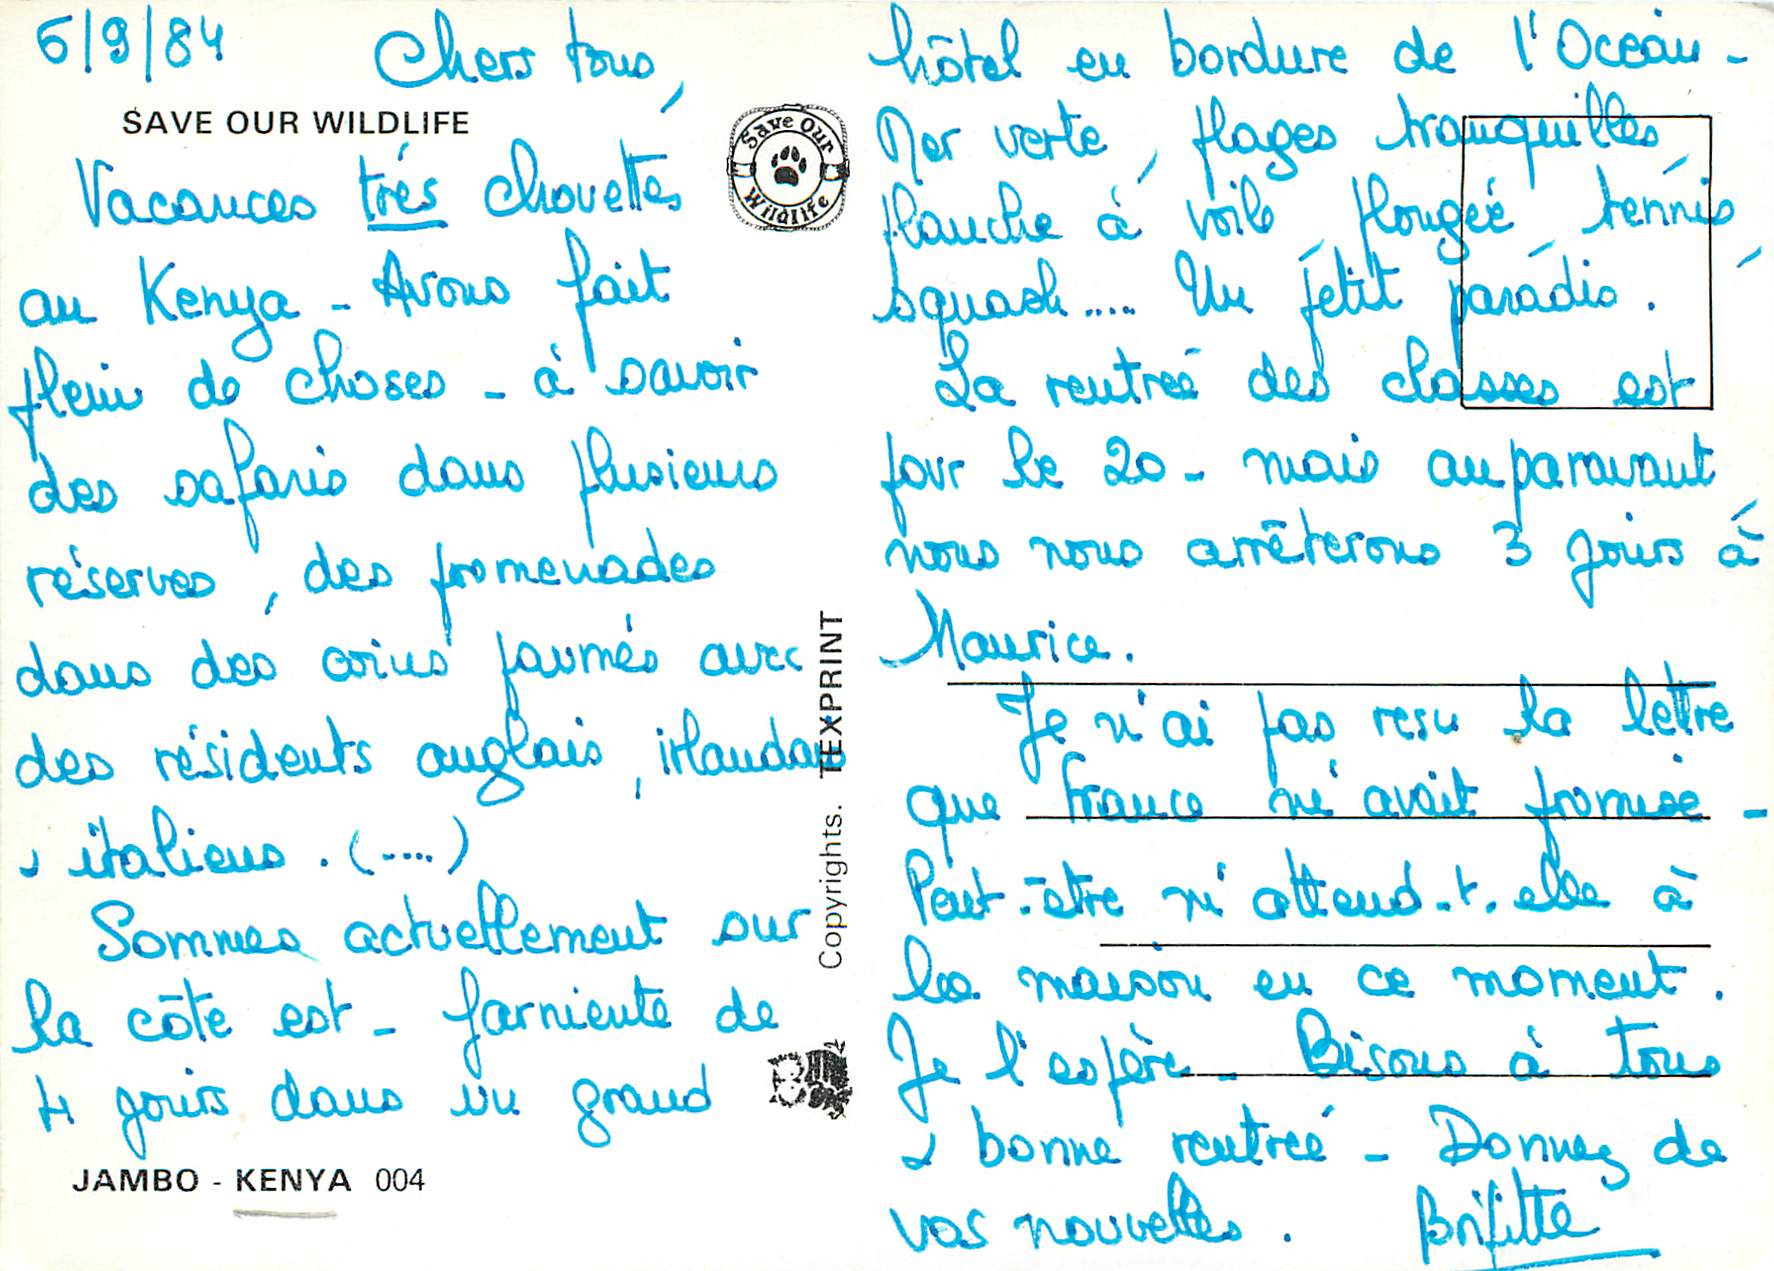 6/9/84
Chers tous,
SAVE OUR WILDLIFE
Save Our
Wildlife
Vacances très chouettes
au Kenya - Avons fait
plein de choses - à savoir
des safaris dans plusieurs
réserves, des promenades
dans des coins paumés avec
des résidents anglais, irlandais
& italiens. (....)
Sommes actuellement sur
la côte est - farniente de
4 jours dans un grand
JAMBO - KENYA 004
Copyrights. TEXPRINT
hôtel en bordure de l'Océan -
Mer verte, plages tranquilles,
planche à voile, plongée, tennis,
squash.... Un petit paradis.
La rentrée des classes est
pour le 20 - mais auparavant,
nous nous arrêterons 3 jours à
Maurice.
Je n'ai pas reçu la lettre
que France m'avait promise -
Peut-être m'attend-t-elle à
la maison en ce moment.
Je l'espère - Bisous à tous
& bonne rentrée - Donnez de
vos nouvelles. Brigitte